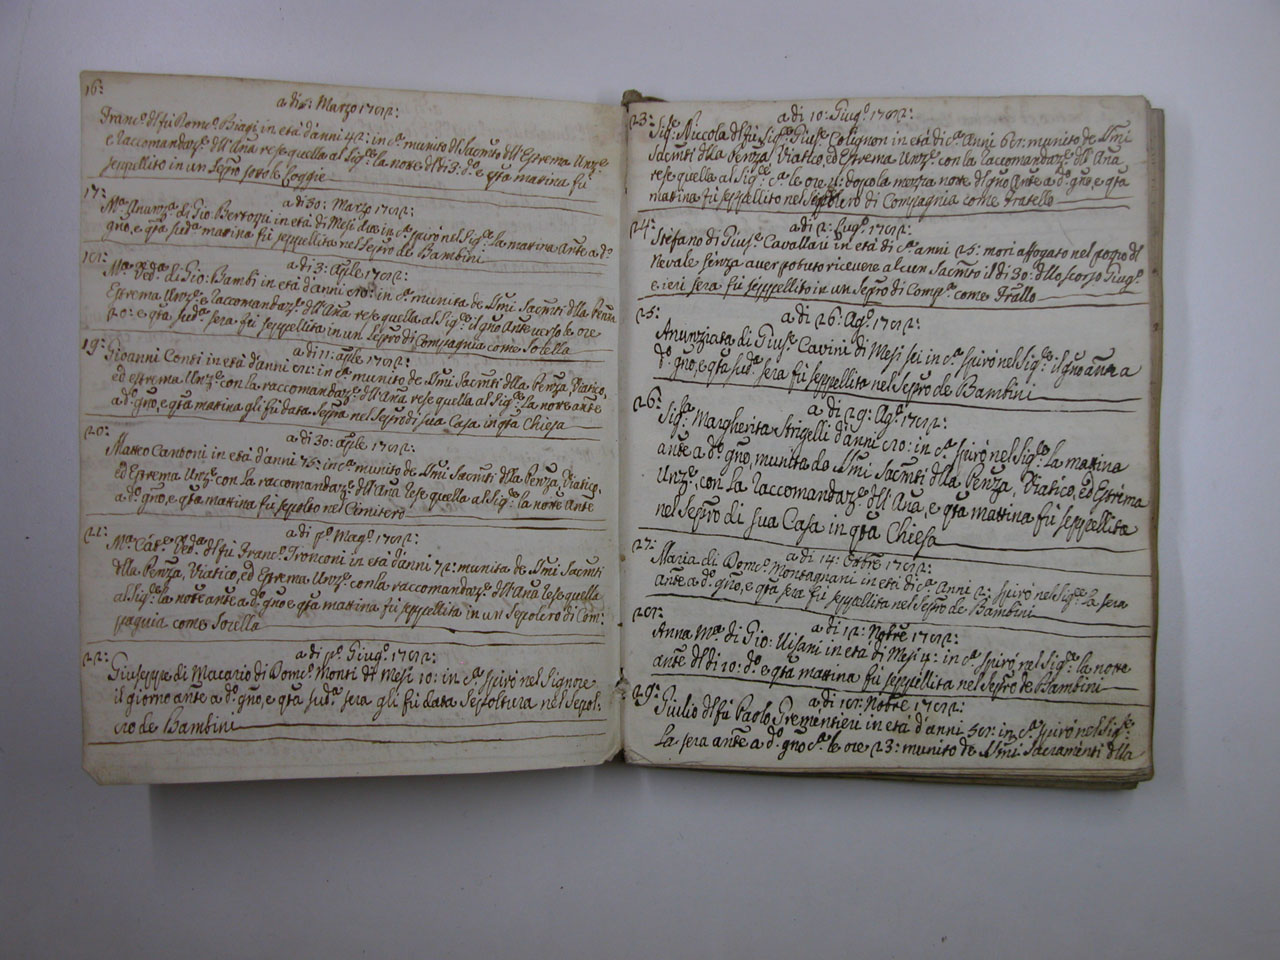 16:
a di 5: Marzo 1782:
Franc.º dl fù Dom.º Biagi in età d'anni 42: in c.ª munito di Sacmto dll' Estrema Unz.e
e raccomandaz.e dll' Ana rese quella al Sig.re la notte dl dì 3: d.º e qta matina fù
seppellito in un Sepro sotto le Loggie
17:
a di 30: Marzo 1782:
M.ª Anunz.ª di Gio: Bertozzi in età di Mesi due in c.ª spirò nel Sig.re la matina Ante a d.º
gno, e qta sud.ª matina fù seppellita nel Sepro de Bambini
18:
a di 3: Aple 1782:
M.ª Ved.ª di Gio: Bambi in età d'anni 80: in c.ª munita de SSmi Sacmti dlla Penza
Estrema Unz.e e raccomandaz.e dll' Ana rese quella al Sig.re il gno Ante verso le ore
20: e qta sud.ª sera fù seppellita in un Sepro di Compagnia come Sorella
19:
a di 11: Aple 1782:
Gioanni Conti in età d'anni 82: in c.ª munito de SSmi Sacmti dlla Penza, Viatico,
ed estrema Unz.e con la raccomandaz.e dll' Ana rese quella al Sig.re La notte ante
a d.º gno, e qta matina gli fù data Sepra nel Sepro di sua Casa in qta Chiesa
20:
a di 30: Aple 1782:
Matteo Cantoni in età d'anni 75: in c.ª munito de SSmi Sacmti dlla Penza, Viatico,
ed Estrema Unz.e con la raccomandaz.e dll' Ana rese quella al Sig.re la notte Ante
a d.º gno, e qta mattina fù sepolto nel Cimitero
21:
a di p.º Mag.º 1782:
M.ª Cat.ª Ved.ª dl fù Franc.º Tronconi in età d'anni 72: munita de SSmi Sacmti
dlla Penza, Viatico, ed Estrema Unz.e con la raccomandaz.e dll' Ana rese quella
al Sig.re la notte ante a d.º gno, e qta matina fù seppellita in un Sepolcro di Com:
pagnia come Sorella
22:
a di p.º Giug.º 1782:
Giuseppe di Macario di Dom.º Monti di Mesi 10: in c.ª spirò nel Signore
il giorno ante a d.º gno, e qta sud.ª sera gli fù data Sepoltura nel Sepol:
cro de Bambini
23:
a di 10: Giug.º 1782:
Sig.r Niccola dl fù Sig.r Gius.e Colignon in età di c.ª Anni 68: munito de SSmi
Sacmti dlla Penza, Viatico, ed Estrema Unz.e con la raccomandaz.e dll' Ana
rese quella al Sig.re c.ª le ore dopo la mezza notte dl gno Ante a d.º gno, e qta
matina fù seppellito nel Sepolcro di Compagnia come Fratello
24:
a di 2: Lug.º 1782:
Stefano di Gius.e Cavallari in età di c.ª anni 25: morì affogato nel pozzo dl
Nevale senza aver potuto ricevere alcun Sacmto il dì 30: dllo scorso Giug.º
e ieri sera fù seppellito in un Sepro di Comp.ª come Frallo
25:
a di 26: Ag.º 1782:
Anunziata di Gius.e Cavini di Mesi sei in c.ª spirò nel Sig.re il gno anna
d.º gno, e qta sud.ª sera fù seppellita nel Sepro de Bambini
26:
a di 29: Ag.º 1782:
Sig.ra Margherita Strigelli d'anni 80: in c.ª spirò nel Sig.re la matina
ante a d.º gno, munita de SSmi Sacmti dlla Penza, Viatico, ed Estrema
Unz.e, con la raccomandaz.e dll' Ana, e qta mattina fù seppellita
nel Sepro di sua Casa in qta Chiesa
27:
a di 14: Ottre 1782:
Maria di Dom.º Montagnani in età di c.ª Anni 2: spirò nel Sig.re La sera
ante a d.º gno, e qta sera fù seppellita nel Sepro de Bambini
28:
a di 12: Nobre 1782:
Anna M.ª di Gio: Visani in età di Mesi 4: in c.ª spirò nel Sig.re la notte
ante dl dì 10: d.º e qta matina fù seppellita nel Sepro de Bambini
29:
a di 18: Nobre 1782:
Giulio dl fù Paolo Trementieri in età d'anni 58: in c.ª spirò nel Sig.re
La sera ante a d.º gno c.ª le ore 23: munito de SSmi Sacramenti dlla